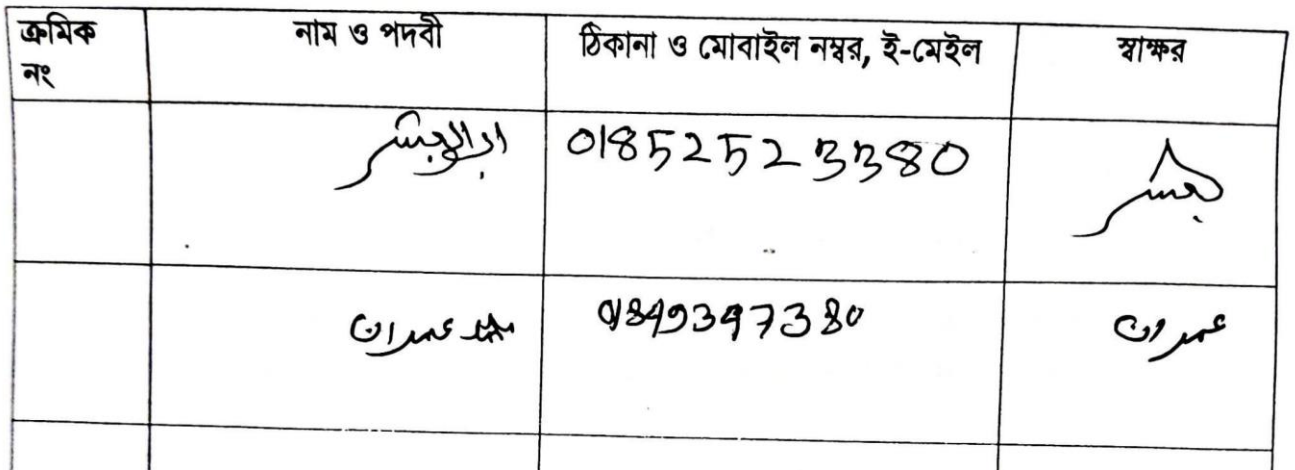 ক্রমিক নং
নাম ও পদবী
ঠিকানা ও মোবাইল নম্বর, ই-মেইল
স্বাক্ষর
ابو البشر
01852523380
بشر
محمد عمران
01849347380
عمران